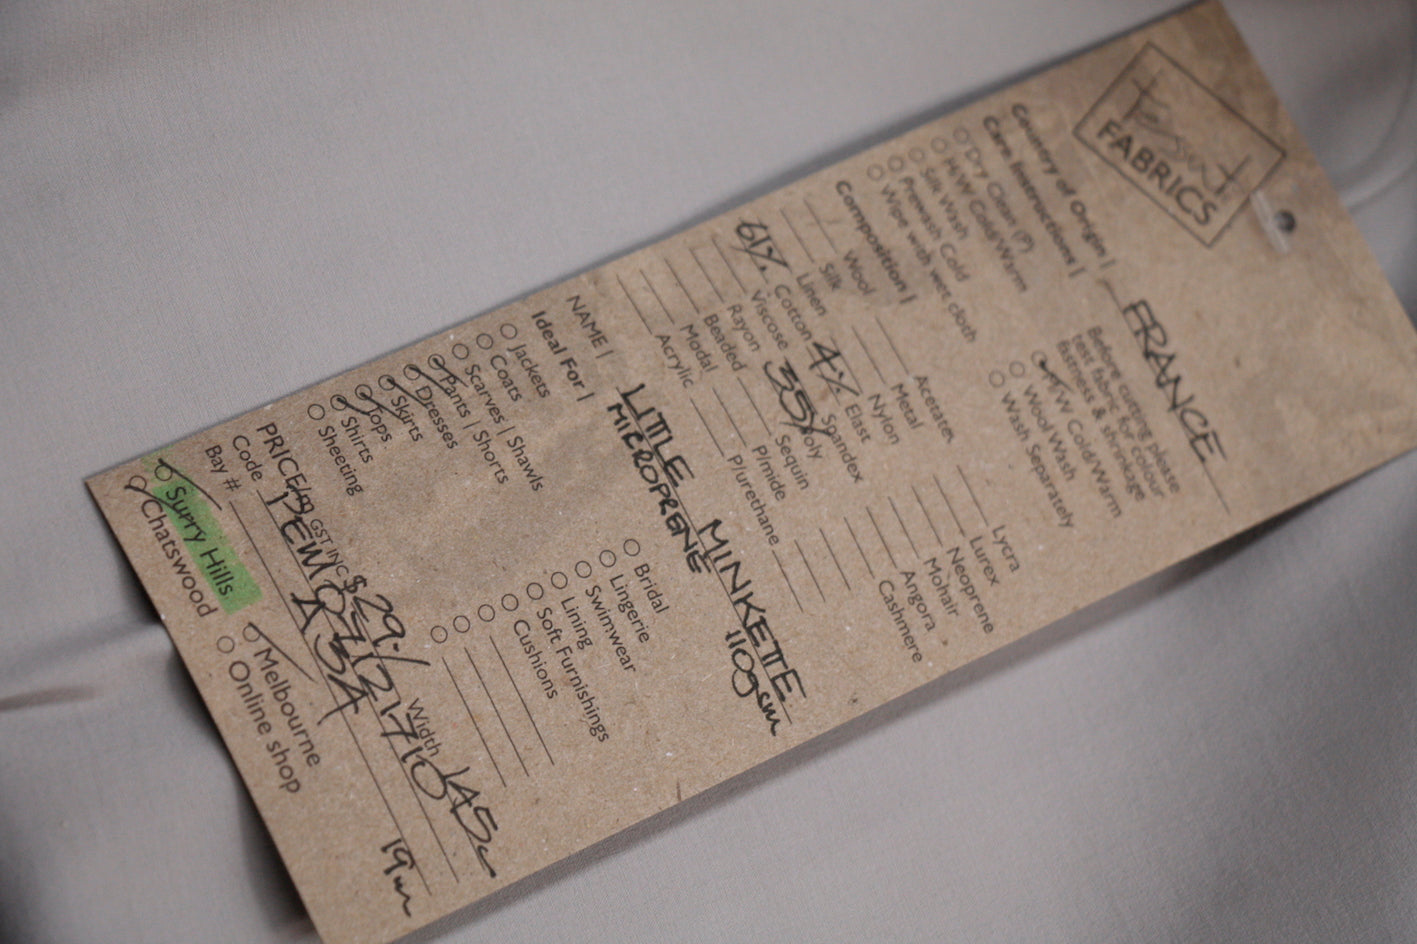 Tessuti
FABRICS
Country of Origin | FRANCE
Care Instructions |
Before cutting please
test fabric for colour
fastness & shrinkage
Dry Clean (P)
H/W Cold/Warm
Silk Wash
Prewash Cold
Wipe with wet cloth
H/W Cold/Warm
Wool Wash
Wash Separately
Composition |
Wool
Silk
Linen
61% Cotton
Viscose
Rayon
Beaded
Modal
Acrylic
Acetate
Metal
Nylon
4% Elast
Spandex
35% Poly
Sequin
P/mide
P/urethane
Lycra
Lurex
Neoprene
Mohair
Angora
Cashmere
NAME | LITTLE MINKETTE
MICROPRENE 110gsm
Ideal For |
Jackets
Coats
Scarves | Shawls
Pants | Shorts
Dresses
Skirts
Tops
Shirts
Sheeting
Bridal
Lingerie
Swimwear
Lining
Soft Furnishings
Cushions
PRICE/m GST INC $29.- Width 145c
Code
Bay # A3A 19m
Surry Hills
Chatswood
Melbourne
Online shop